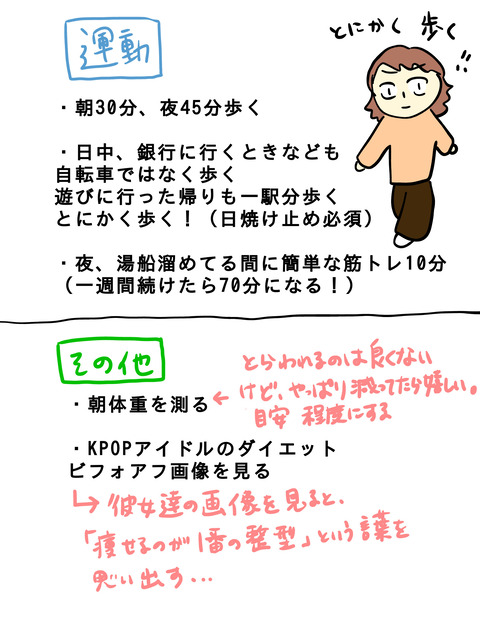 運動
とにかく 歩く!!
・朝30分、夜45分歩く
・日中、銀行に行くときなども
自転車ではなく歩く
遊びに行った帰りも一駅分歩く
とにかく歩く！（日焼け止め必須）
・夜、湯船溜めてる間に簡単な筋トレ10分
（一週間続けたら70分になる！）
その他
とらわれるのは良くない
けど、やっぱり減ってたら嬉しい。
目安 程度にする
・朝体重を測る←
・KPOPアイドルのダイエット
ビフォアフ画像を見る
↳彼女達の画像を見ると、
「痩せるのが1番の整型」という言葉を
思い出す...